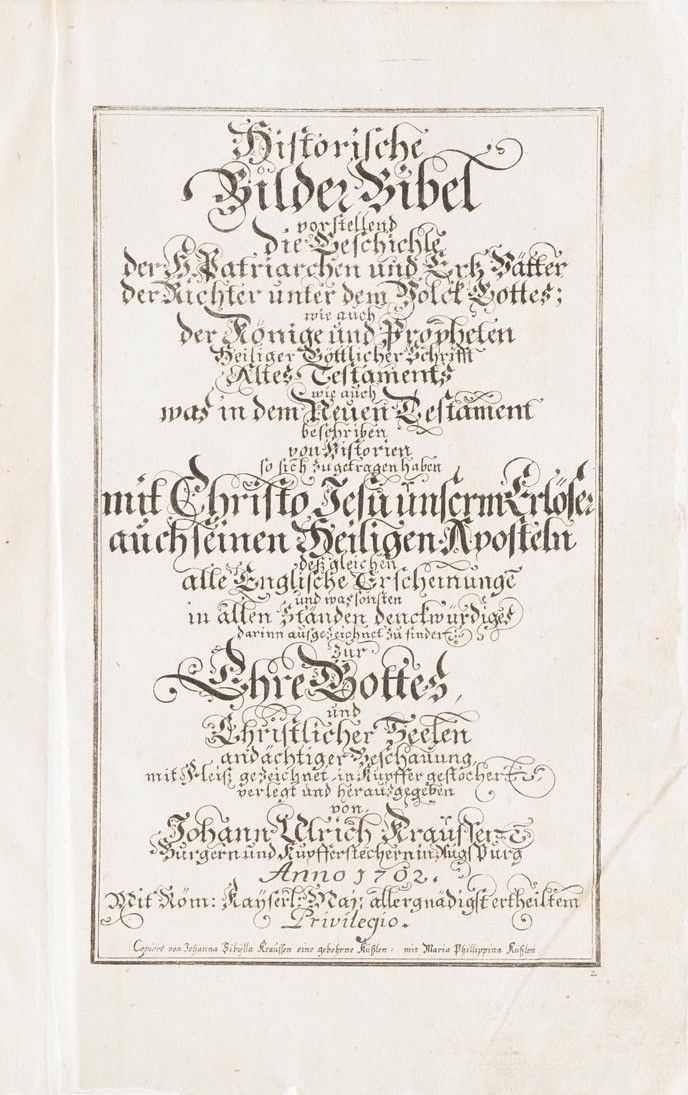 Historische
Bilder Bibel
vorstellend
die Geschichte
der H. Patriarchen und Ertz Vätter
der Richter unter dem Volck Gottes;
wie auch
der Könige und Propheten
Heiliger Göttlicher Schrifft
Altes Testaments
wie auch
was in dem Neuen Testament
beschriben
von Historien
so sich zugetragen haben
mit Christo Jesu unserm Erlöser
auch seinen Heiligen Aposteln
deßgleichen
alle Englische Erscheinungē
und was sonsten
in allen Ständen denckwürdiges
darinn ausgezeichnet zu finden
zur
Ehre Gottes,
und
Christlicher Seelen
andächtiger Beschauung
mit Fleiß gezeichnet, in Kupffer gestochen
verlegt und herausgegeben
von
Johann Ulrich Kraussen
Burgern und Kupfferstechern in Augspurg
Anno 1702.
Mit Röm: Kayserl: Maj: allergnädigst ertheiltem
Privilegio.
Copiert von Johanna Sibylla Kraussen eine gebohrne Küßlen, mit Maria Phillippina Küßlen
2